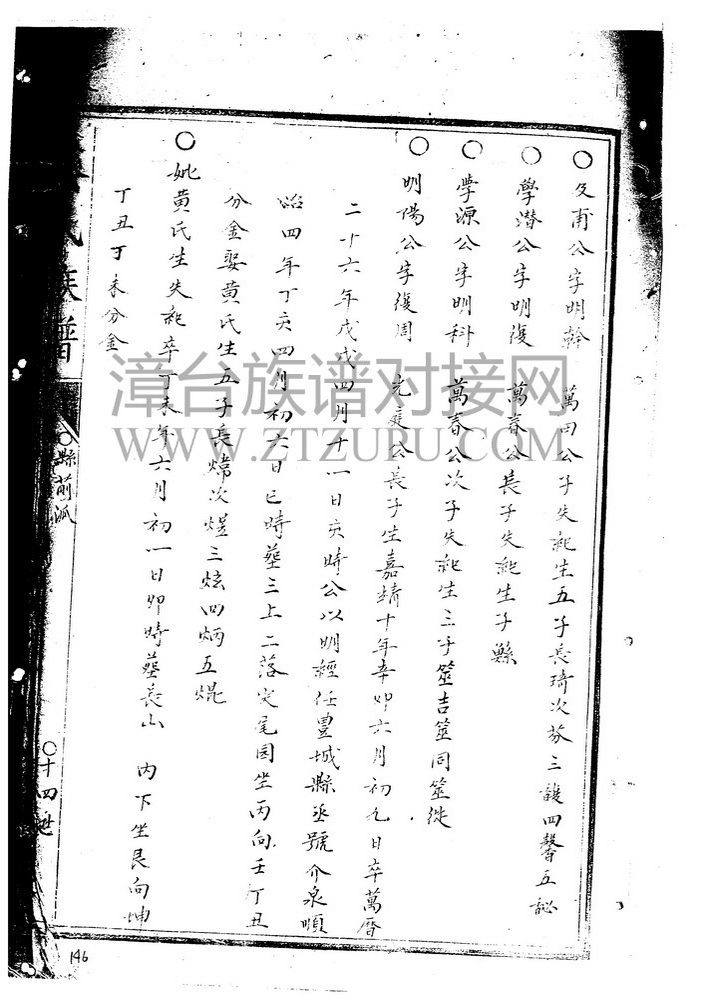 ○文甫公字明幹 萬田公子失紀生五子長琦次芬三馥四馨五馝
○學潛公字明復 萬春公長子失紀生子縣
○學源公字明科 萬春公次子失紀生三子筮吉筮同筮從
○明陽公字復周 元庭公長子生嘉靖十年辛卯六月初九日卒萬曆
二十六年戊戌四月十一日亥時公以明經任豐城縣丞號介泉順
治四年丁亥四月初六日巳時葬三上二落定尾园坐丙向壬丁丑
分金娶黃氏生五子長煒次煜三炫四炳五焜
○妣黃氏生失紀卒丁未年六月初一日卯時葬長山 內下坐艮向坤
丁丑丁未分金
氏族譜
○縣前派
○十四世
146
漳台族谱对接网
WWW.ZTZUPU.COM